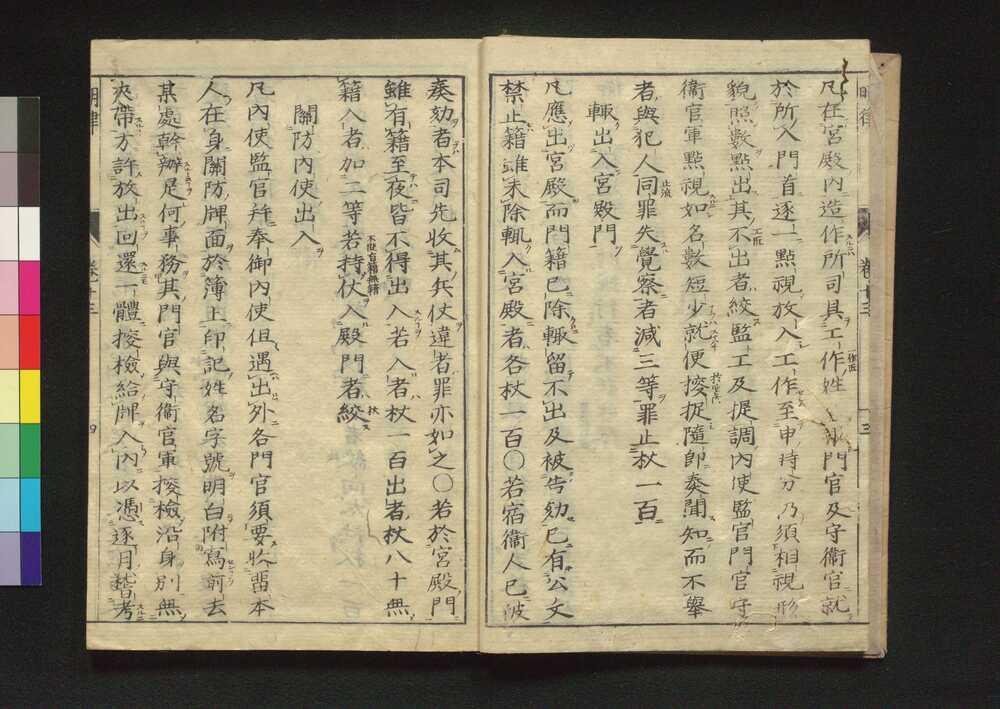 凡在宮殿内造作所司具工作姓名報門官及守衞官就
於所入門首逐一點視放入工作至申時分乃須相視形
貌照數點出其不出者絞監工及提調内使監官門官守
衞官軍點視如名數短少就便搜捉隨即奏聞知而不舉
者與犯人同罪失覺察者減三等罪止杖一百
輙出入宮殿門
凡應出宮殿而門籍已除輙留不出及被告劾已有公文
禁止籍雖未除輙入宮殿者各杖一百〇若宿衞人已被
奏劾者本司先收其兵仗違者罪亦如之〇若於宮殿門
雖有籍至夜皆不得出入若入者杖一百出者杖八十無
籍入者加二等若持仗入殿門者絞
關防内使出入
凡内使監官并奉御内使但遇出外各門官須要收畱本
人在身關防牌面於簿上印記姓名字號明白附寫前去
某處幹辦是何事務其門官與守衞官軍搜檢沿身別無
夾帶方許放出回還一體搜檢給牌入内以憑逐月稽考
明律
卷十三
三
四